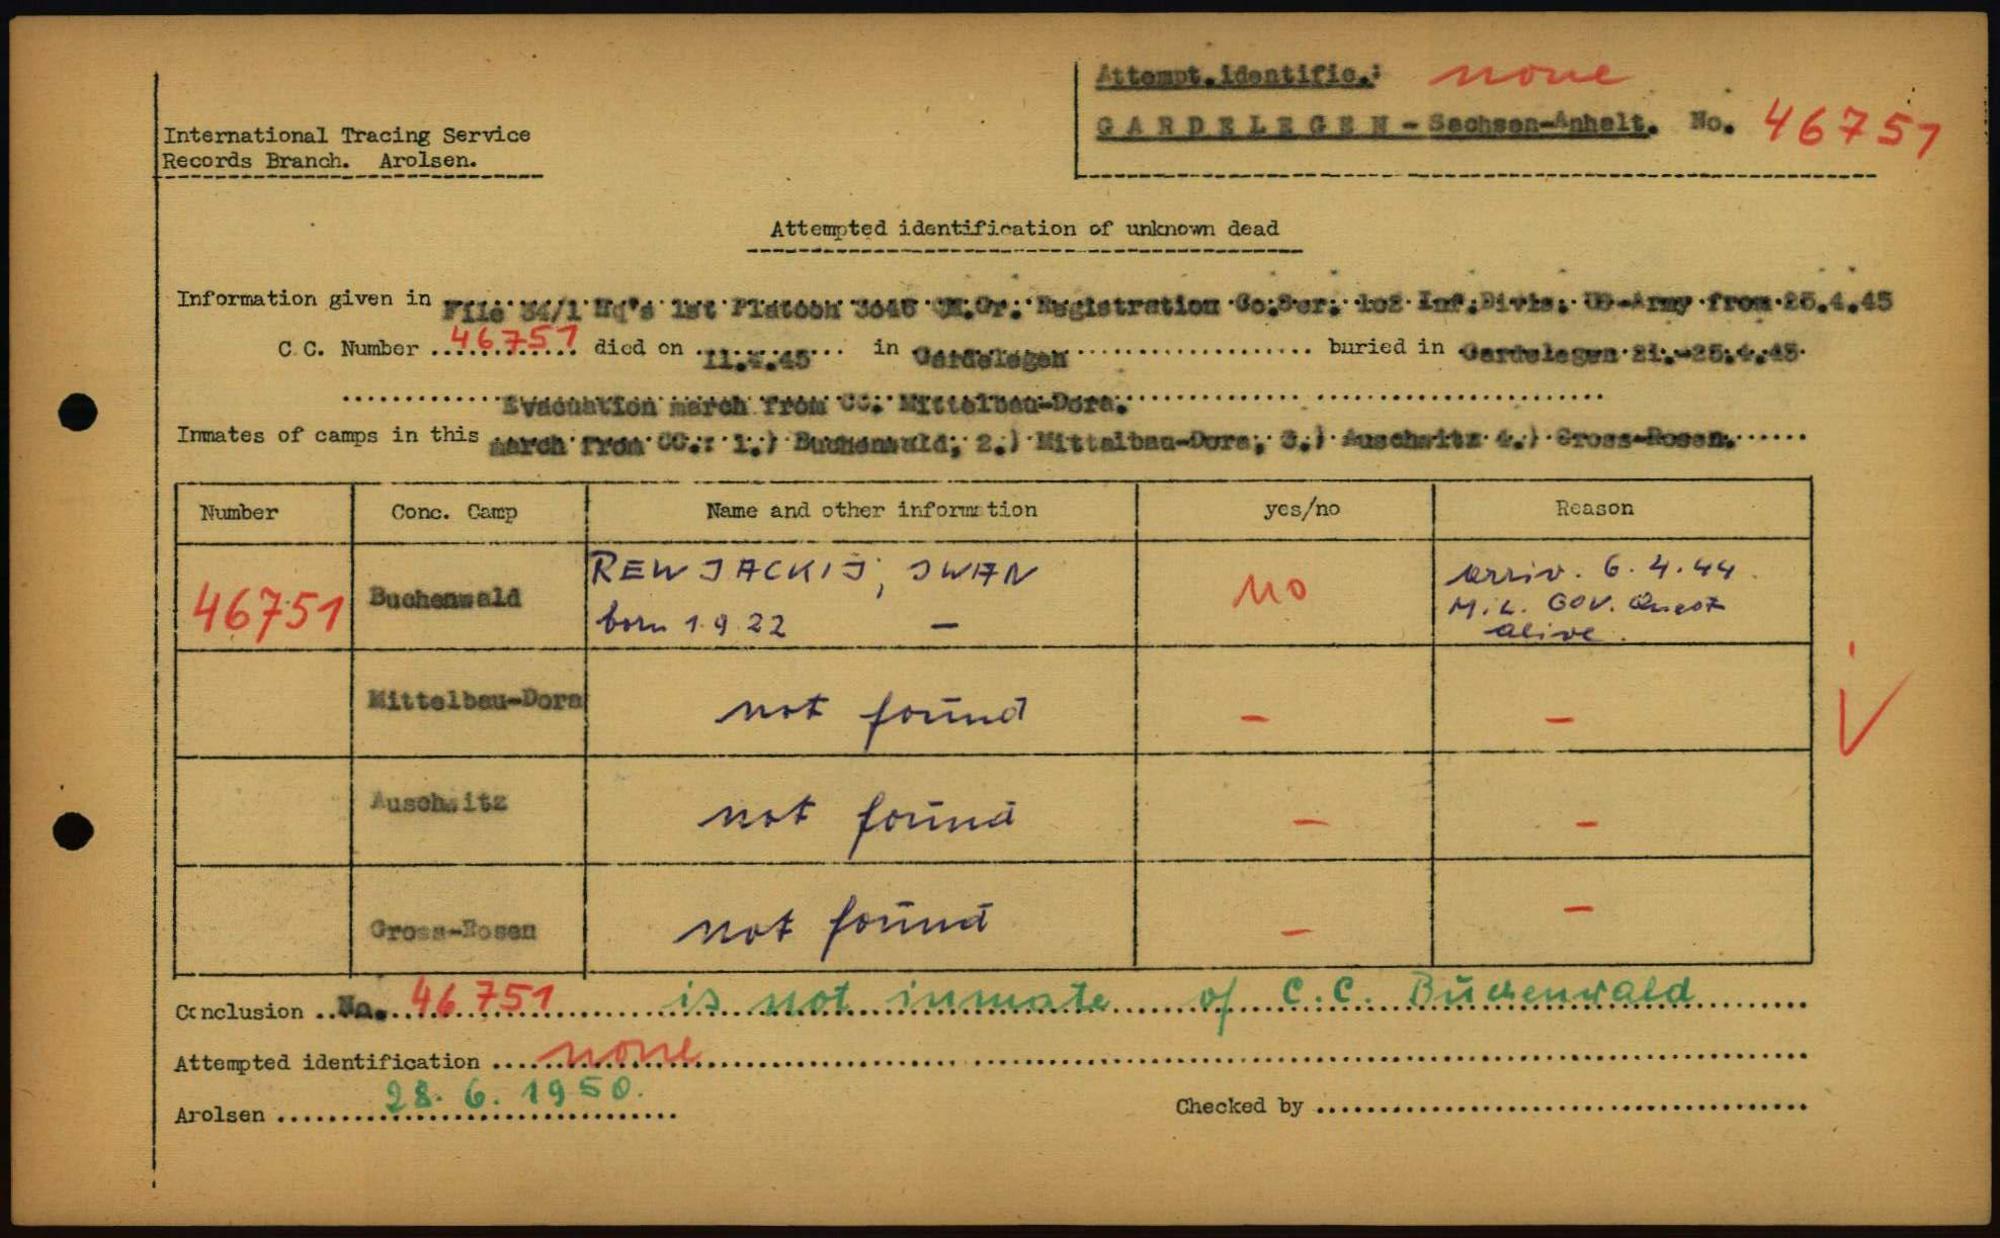 Attempt.identific.: none
International Tracing Service
GARDELEGEN - Sachsen-Anhalt. No. 46751
Records Branch. Arolsen.
Attempted identification of unknown dead
Information given in File 54/1 Hq's 1st Platoon 3046 QM.Gr. Registration Co.Ser. 102 Inf.Divis. US-Army from 25.4.45
C.C. Number 46751 died on 11.4.45 in Gardelegen buried in Gardelegen 21.-25.4.45
Evacuation march from CC. Mittelbau-Dora.
Inmates of camps in this march from CC.: 1.) Buchenwald; 2.) Mittelbau-Dora; 3.) Auschwitz 4.) Gross-Rosen.
Number Conc. Camp Name and other information yes/no Reason
46751 Buchenwald REWJACKIJ, JWAN no arriv. 6.4.44.
born 1.9.22 — Mil. GOV. Quest
alive.
Mittelbau-Dora not found - -
Auschwitz not found - -
Gross-Rosen not found - -
Conclusion No. 46751 is not inmate of C.C. Buchenwald
Attempted identification none
Arolsen 28.6.1950. Checked by